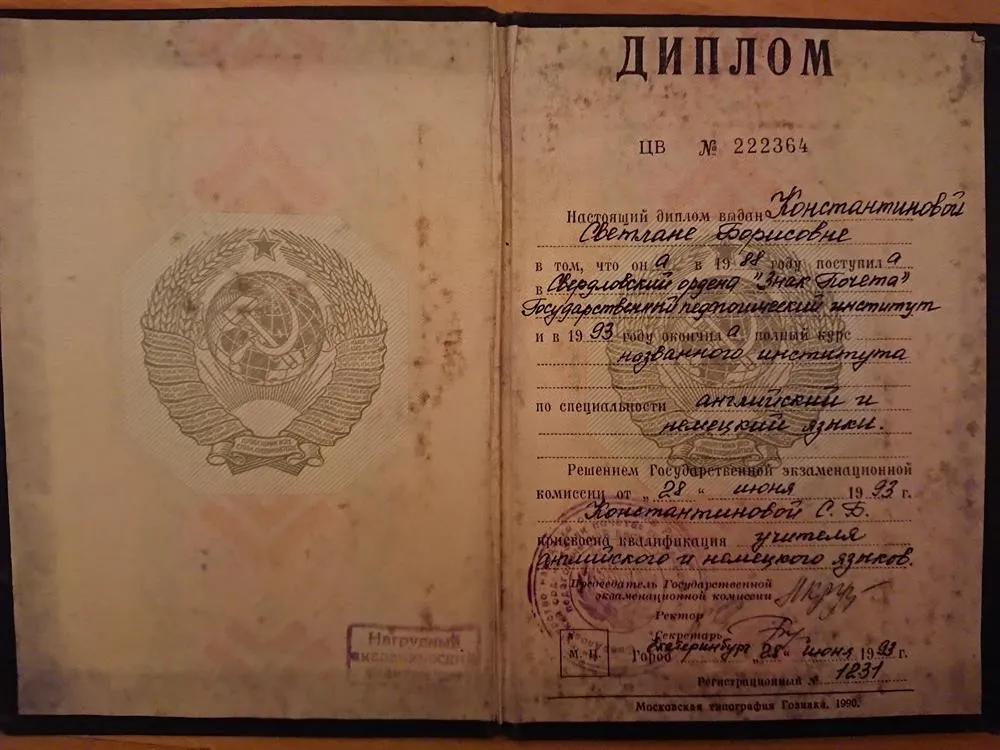 ДИПЛОМ
ЦВ № 222364
Настоящий диплом выдан Константиновой
Светлане Борисовне
в том, что он а в 19 88 году поступил а
в Свердловский ордена "Знак Почета"
Государственный педагогический институт
и в 19 93 году окончил а полный курс
названного института
по специальности английский и
немецкий языки.
Решением Государственной экзаменационной
комиссии от „ 28 “ июня 19 93 г.
Константиновой С. Б.
присвоена квалификация учителя
английского и немецкого языков.
Председатель Государственной
экзаменационной комиссии
Ректор
Секретарь
М. П. Город Екатеринбург „ 28 “ июня 19 93 г.
Регистрационный № 1231
Московская типография Гознака. 1990.
Нагрудный